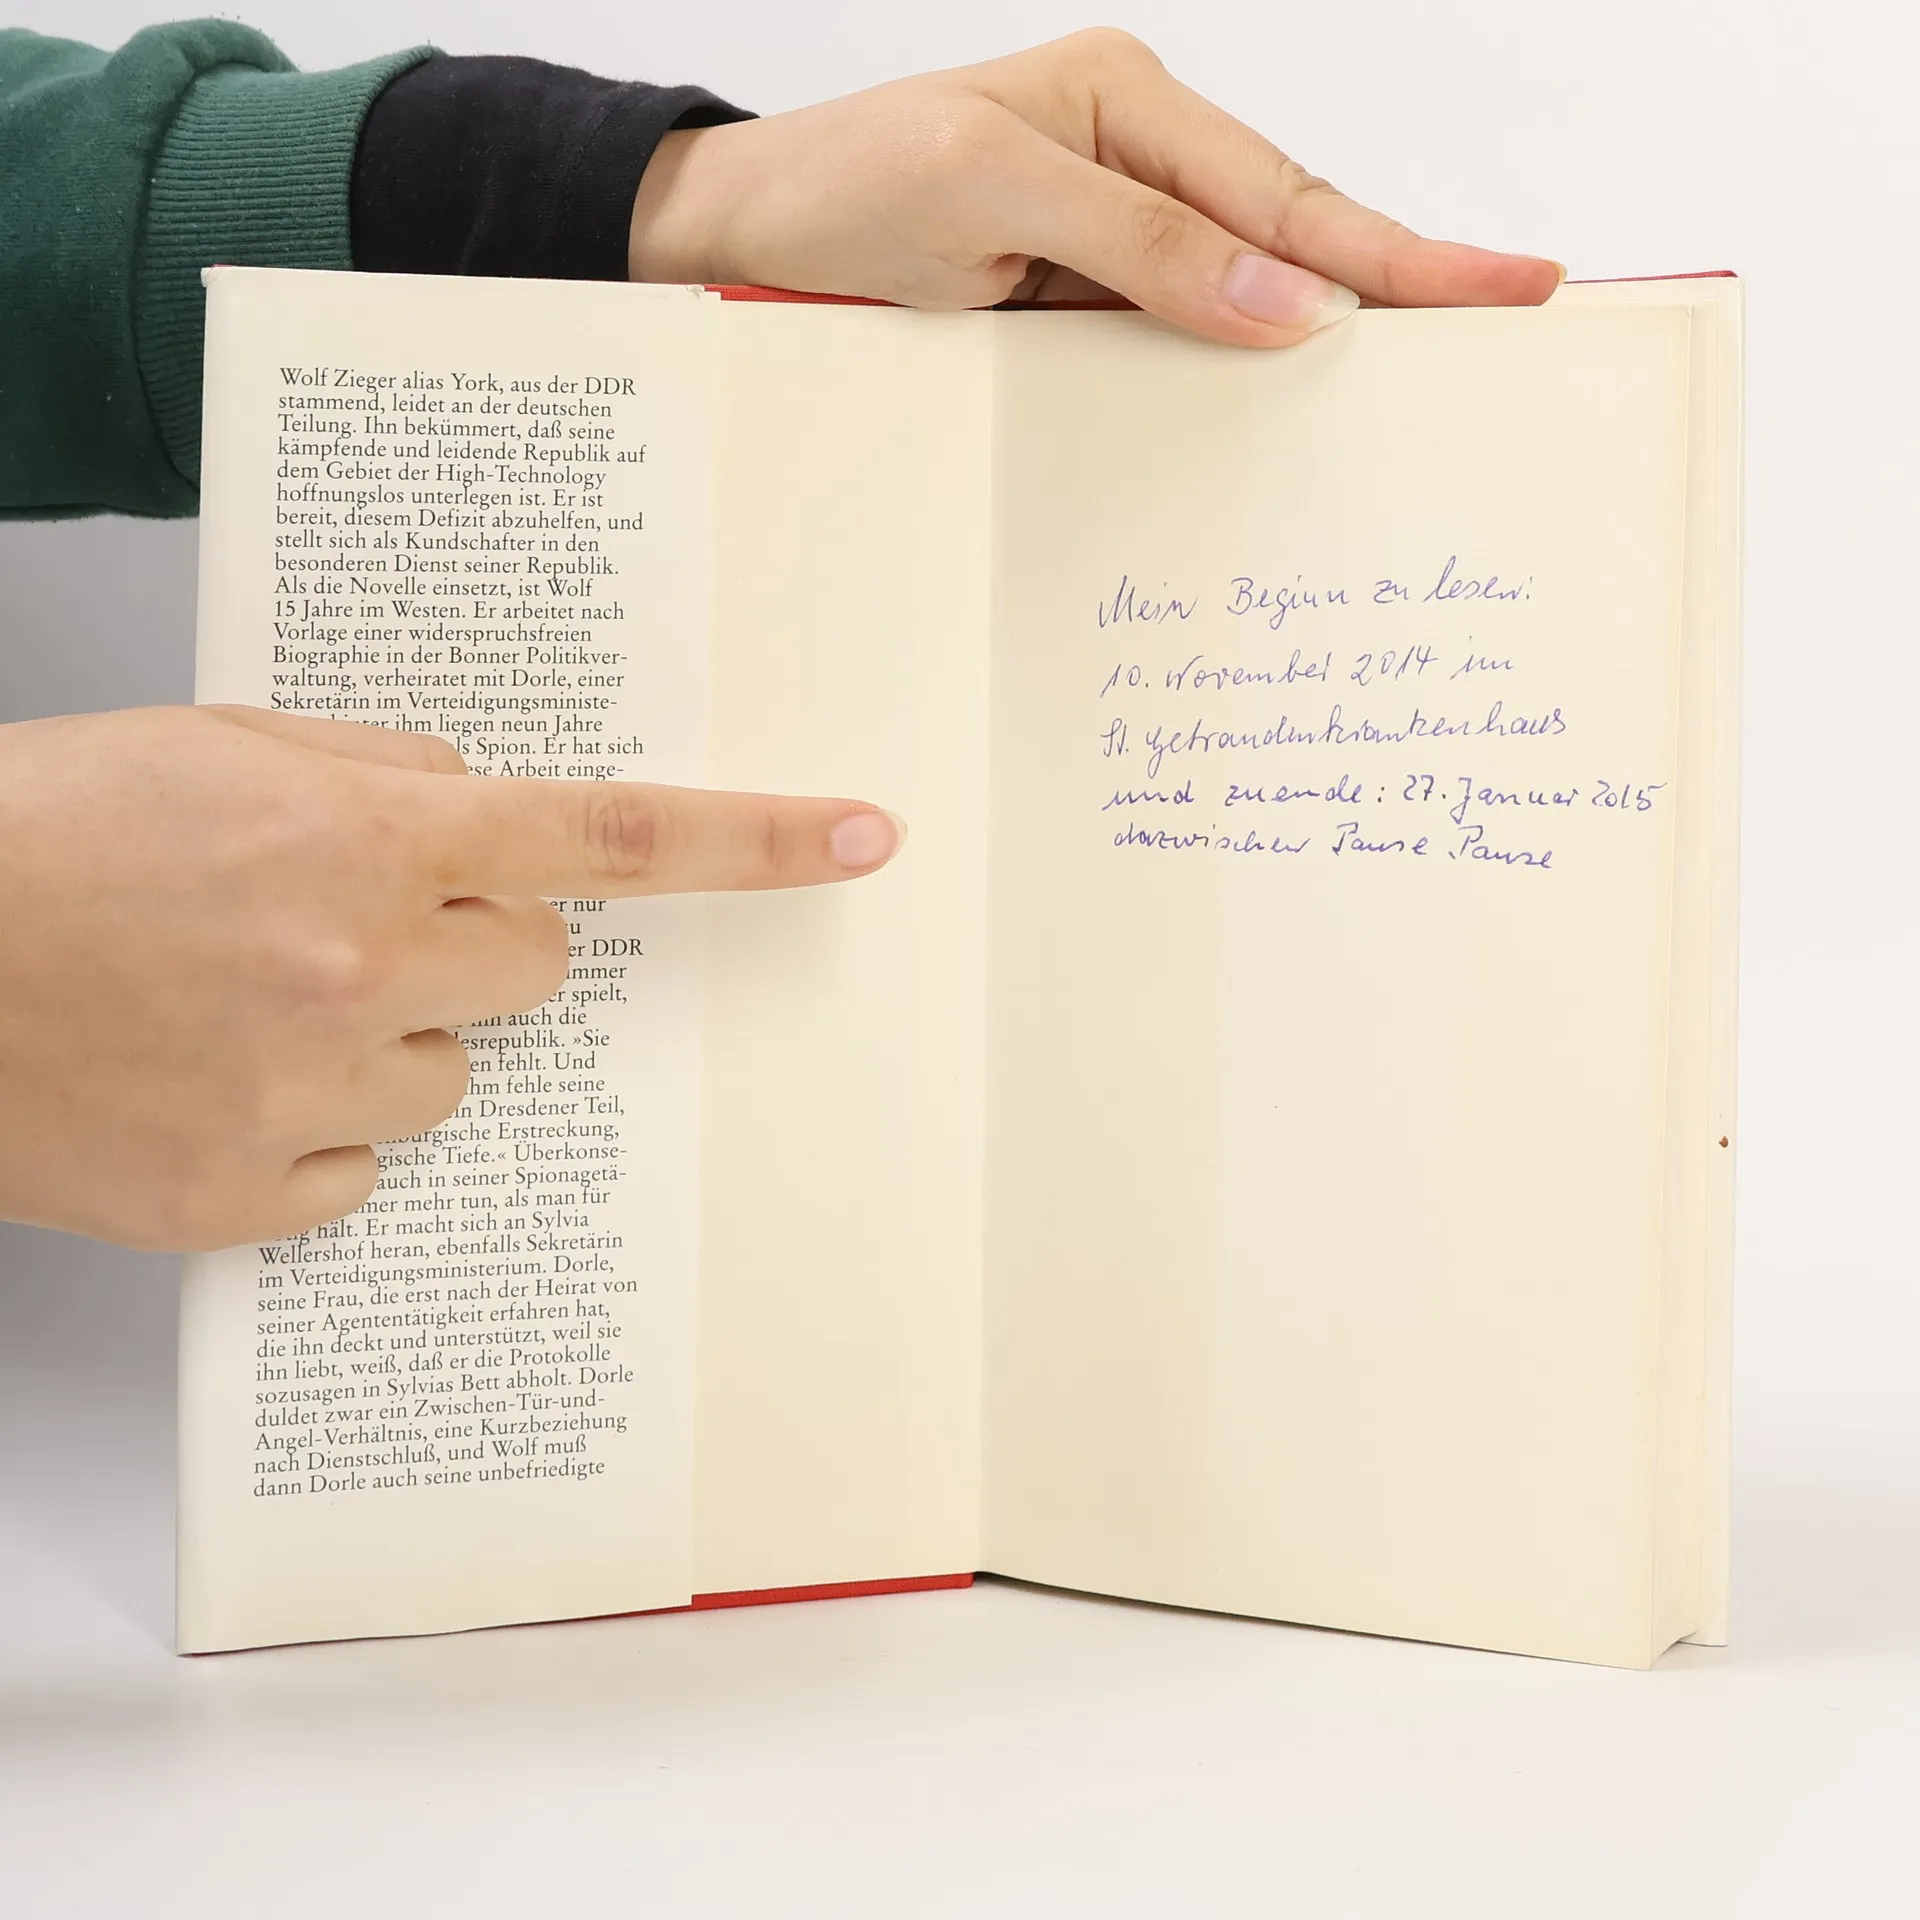 Wolf Zieger alias York, aus der DDR
stammend, leidet an der deutschen
Teilung. Ihn bekümmert, daß seine
kämpfende und leidende Republik auf
dem Gebiet der High-Technology
hoffnungslos unterlegen ist. Er ist
bereit, diesem Defizit abzuhelfen, und
stellt sich als Kundschafter in den
besonderen Dienst seiner Republik.
Als die Novelle einsetzt, ist Wolf
15 Jahre im Westen. Er arbeitet nach
Vorlage einer widerspruchsfreien
Biographie in der Bonner Politikver-
waltung, verheiratet mit Dorle, einer
Sekretärin im Verteidigungsministe-
ihm liegen neun Jahre
ls Spion. Er hat sich
ese Arbeit einge-
er nur
zu
er DDR
immer
er spielt,
auch die
esrepublik. »Sie
en fehlt. Und
hm fehle seine
in Dresdener Teil,
burgische Erstreckung,
gische Tiefe.« Überkonse-
auch in seiner Spionagetä-
mer mehr tun, als man für
hält. Er macht sich an Sylvia
Wellershof heran, ebenfalls Sekretärin
im Verteidigungsministerium. Dorle,
seine Frau, die erst nach der Heirat von
seiner Agententätigkeit erfahren hat,
die ihn deckt und unterstützt, weil sie
ihn liebt, weiß, daß er die Protokolle
sozusagen in Sylvias Bett abholt. Dorle
duldet zwar ein Zwischen-Tür-und-
Angel-Verhältnis, eine Kurzbeziehung
nach Dienstschluß, und Wolf muß
dann Dorle auch seine unbefriedigte
Mein Beginn zu lesen:
10. November 2014 im
St. Getraudenkrankenhaus
und zuende: 27. Januar 2015
dazwischen Pause Pause